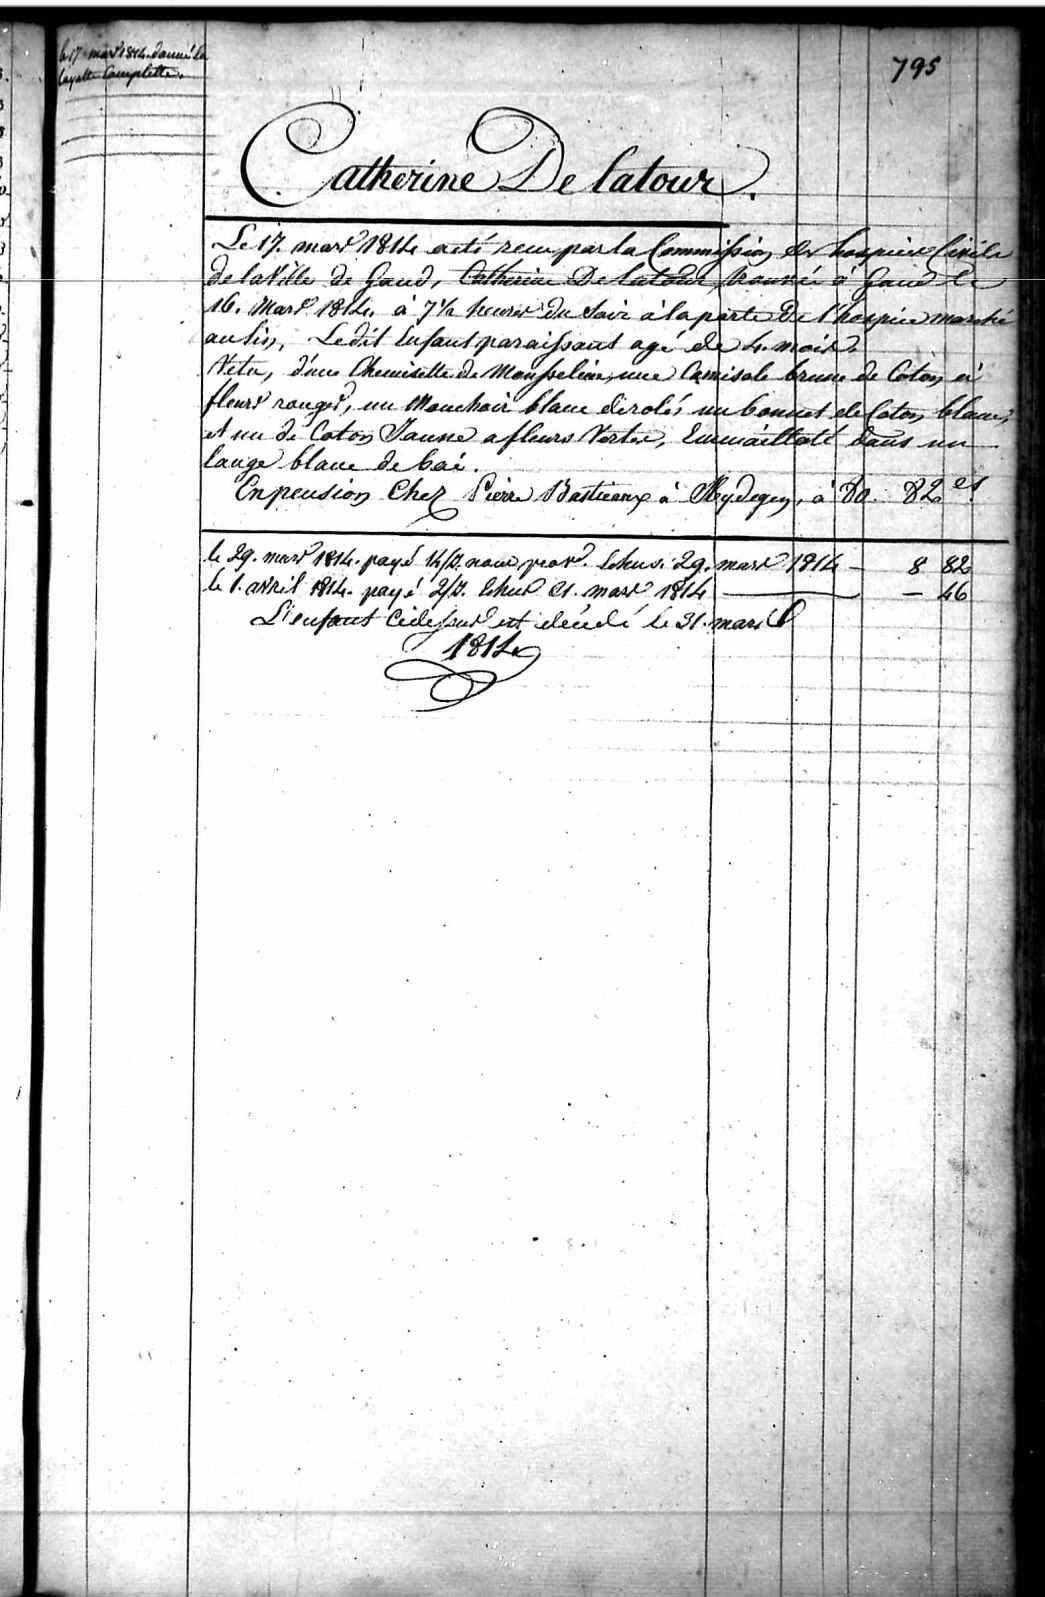 795
le 17 mars 1814 donné la
layette Complette.
Catherine De latour.
Le 17. mars 1814 a eté recu par la Commission des hospices Civils
de la Ville de Gand, Catherine De latour, trouvée à Gand le
16. Mars 1814. à 7½ heures du Soir à la porte De l'hospice marché
au lin, Ledit Enfant paraissant agé de 4. mois.
Vetu, d'une Chemisette de Mousseline, une Camisole brune de Coton à
fleurs rouges, un Mouchoir blanc un bonnet de Coton blanc,
et un de Coton Jaune a fleurs Vertes, Emmailloté dans un
lange blanc de baié.
En pension Chez Pierre à à 80. 82 es
le 29. mars 1814. payé Echus. 29. mars 1814 — 8 82
le 1. avril 1814. payé 2/3. Echus 31. mars 1814 — — 46
L'enfant Cidessus est décédé le 31. mars
1814